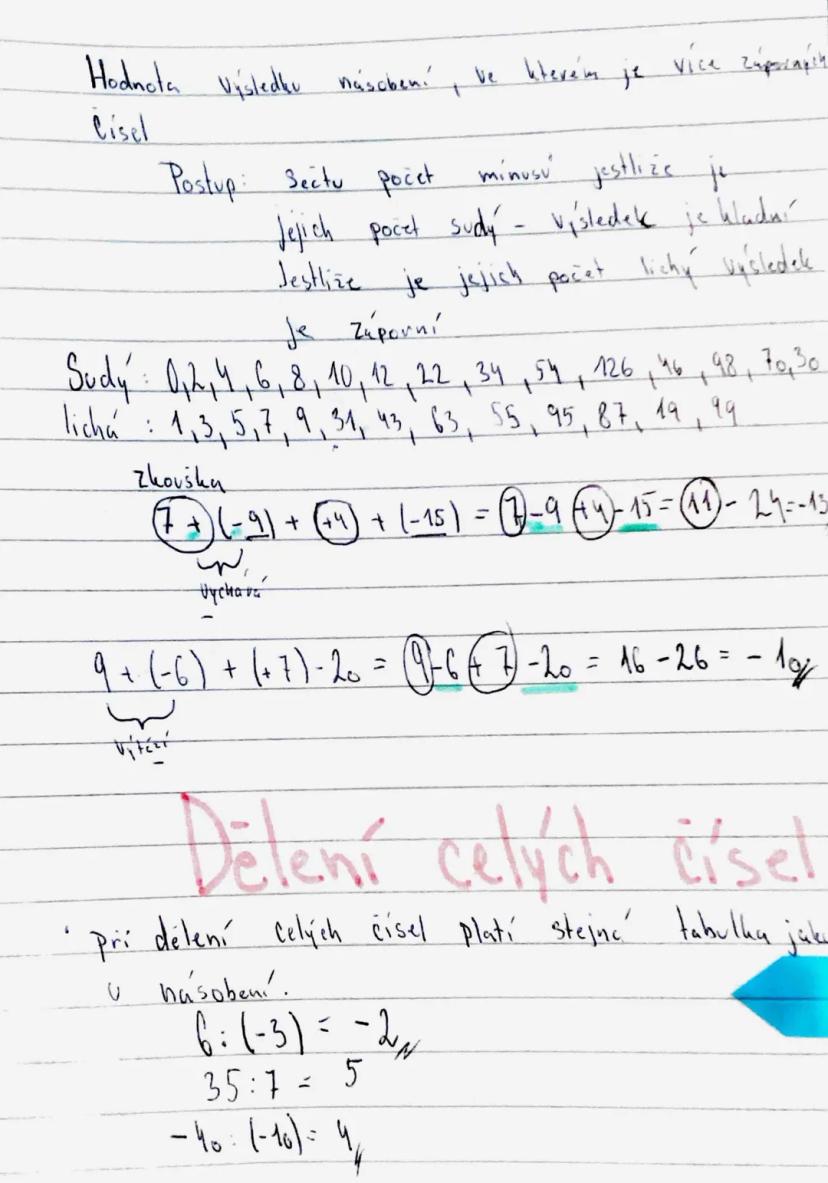 Hodnota výsledku násobení, ve kterém je více záporných
čísel
Postup: Sečtu počet mínusů jestliže je
jejich počet sudý - výsledek je kladní
Jestliže je jejich počet lichý výsledek
je záporní
Sudý: 0,2,4,6,8,10,12,22,34,54,126,46,98,70,30
lichá: 1,3,5,7,9,31,43,63,55,95,87,19,99
Zkouška
7 + (-9) + (+4) + (-15) = 7-9+4-15 = 11 - 24 = -13
9 + (-6) + (+7) - 20 = 9-6+7-20 = 16 - 26 = -10
vítězí
Dělení celých čísel
při dělení celých čísel platí stejná tabulka jako
u násobení.
6 : (-3) = -2
35 : 7 = 5
-40 : (-10) = 4